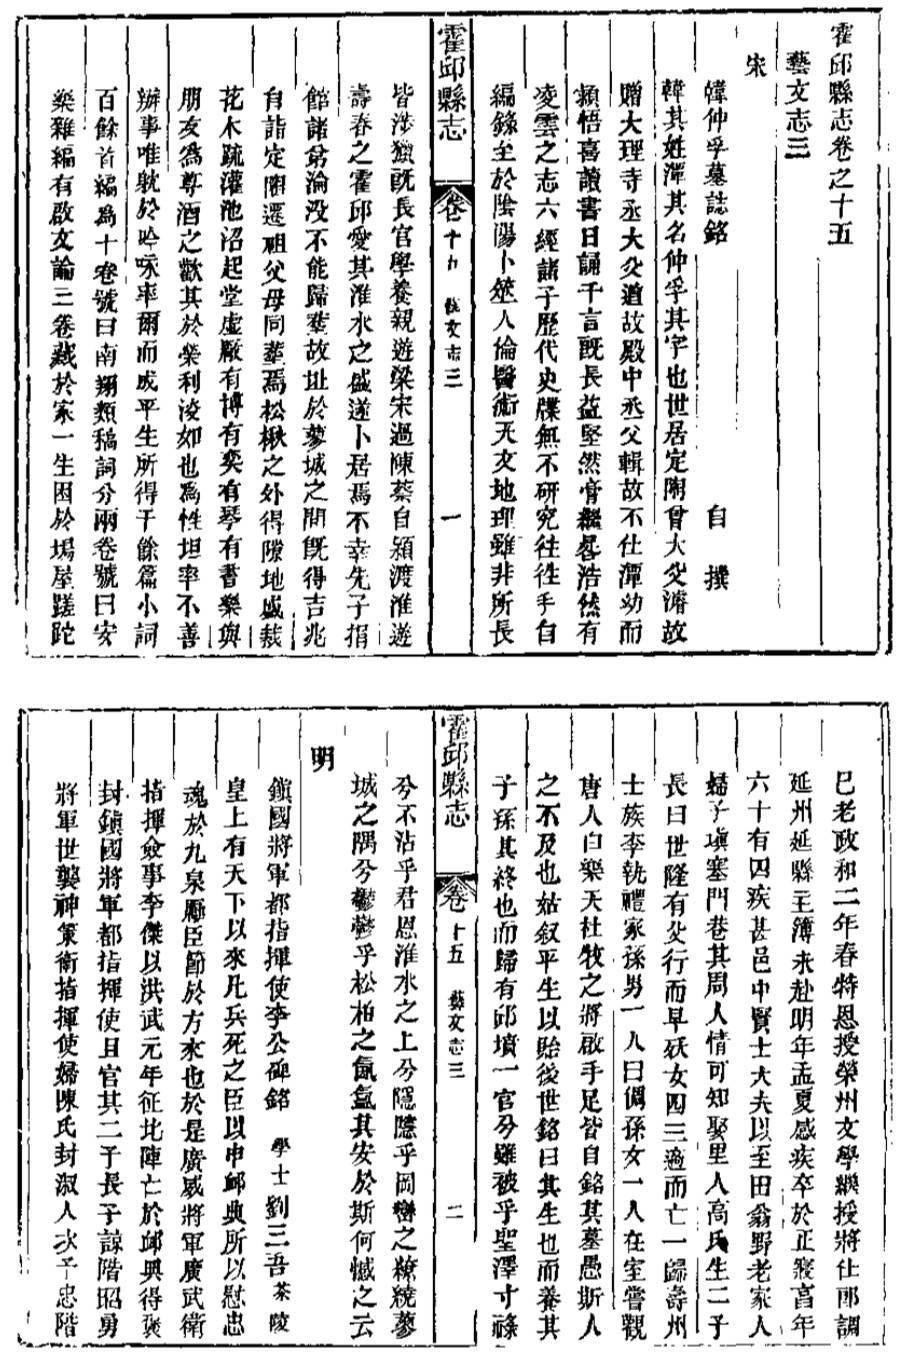 霍邱縣志卷之十五
藝文志三
宋
韓仲孚墓誌銘 自撰
韓其姓潭其名仲孚其字也世居定陶曾大父濬故
贈大理寺丞大父遒故殿中丞父輯故不仕潭幼而
潁悟喜讀書日誦千言既長益堅然膏繼晷浩然有
凌雲之志六經諸子歷代史牒無不研究往往手自
編錄至於陰陽卜筮人倫醫術天文地理雖非所長
霍邱縣志
卷十五 藝文志三
一
皆涉獵既長官學養親遊梁宋過陳蔡自潁渡淮遊
壽春之霍邱愛其淮水之盛遂卜居焉不幸先子捐
館諸弟淪没不能歸葬故址於蓼城之間既得吉兆
自詣定陶遷祖父母同葬焉松楸之外得隙地盛栽
花木疏灌池沼起堂虛厰有博有奕有琴有書樂與
朋友為尊酒之歡其於榮利淩如也為性坦率不善
辦事唯躭於吟咏率爾而成平生所得千餘篇小詞
百餘首編爲十卷號曰南翔類稿詞分兩卷號曰安
樂雜編有啟文論三卷藏於家一生困於塲屋蹉跎
已老政和二年春特恩授榮州文學繼授將仕郎調
延州延縣主簿未赴明年孟夏感疾卒於正寢富年
六十有四疾甚邑中賢士大夫以至田翁野老家人
婦子塡塞門巷其周人情可知娶里人高氏生二子
長曰世隆有父行而早殀女四三適而亡一歸壽州
士族李執禮家孫男一人曰倜孫女一人在室嘗觀
唐人白樂天杜牧之將啟手足皆自銘其墓愚斯人
之不及也姑叙平生以貽後世銘曰其生也而養其
子孫其終也而歸有邱墳一官兮雖被乎聖澤寸祿
霍邱縣志
卷十五 藝文志三
二
兮不沾乎君恩淮水之上兮隱隱乎岡巒之繚繞蓼
城之隅兮鬱鬱乎松柏之氤氲其安於斯何憾之云
明
鎭國將軍都指揮使李公碑銘 學士劉三吾茶陵
皇上有天下以來凡兵死之臣以申邮典所以慰忠
魂於九泉勵臣節於方來也於是廣威將軍廣武衛
指揮僉事李傑以洪武元年征北陣亡於邮興得褒
封鎭國將軍都指揮使且官其二子長子諒階昭勇
將軍世襲神策衛指揮使婦陳氏封淑人次子忠階